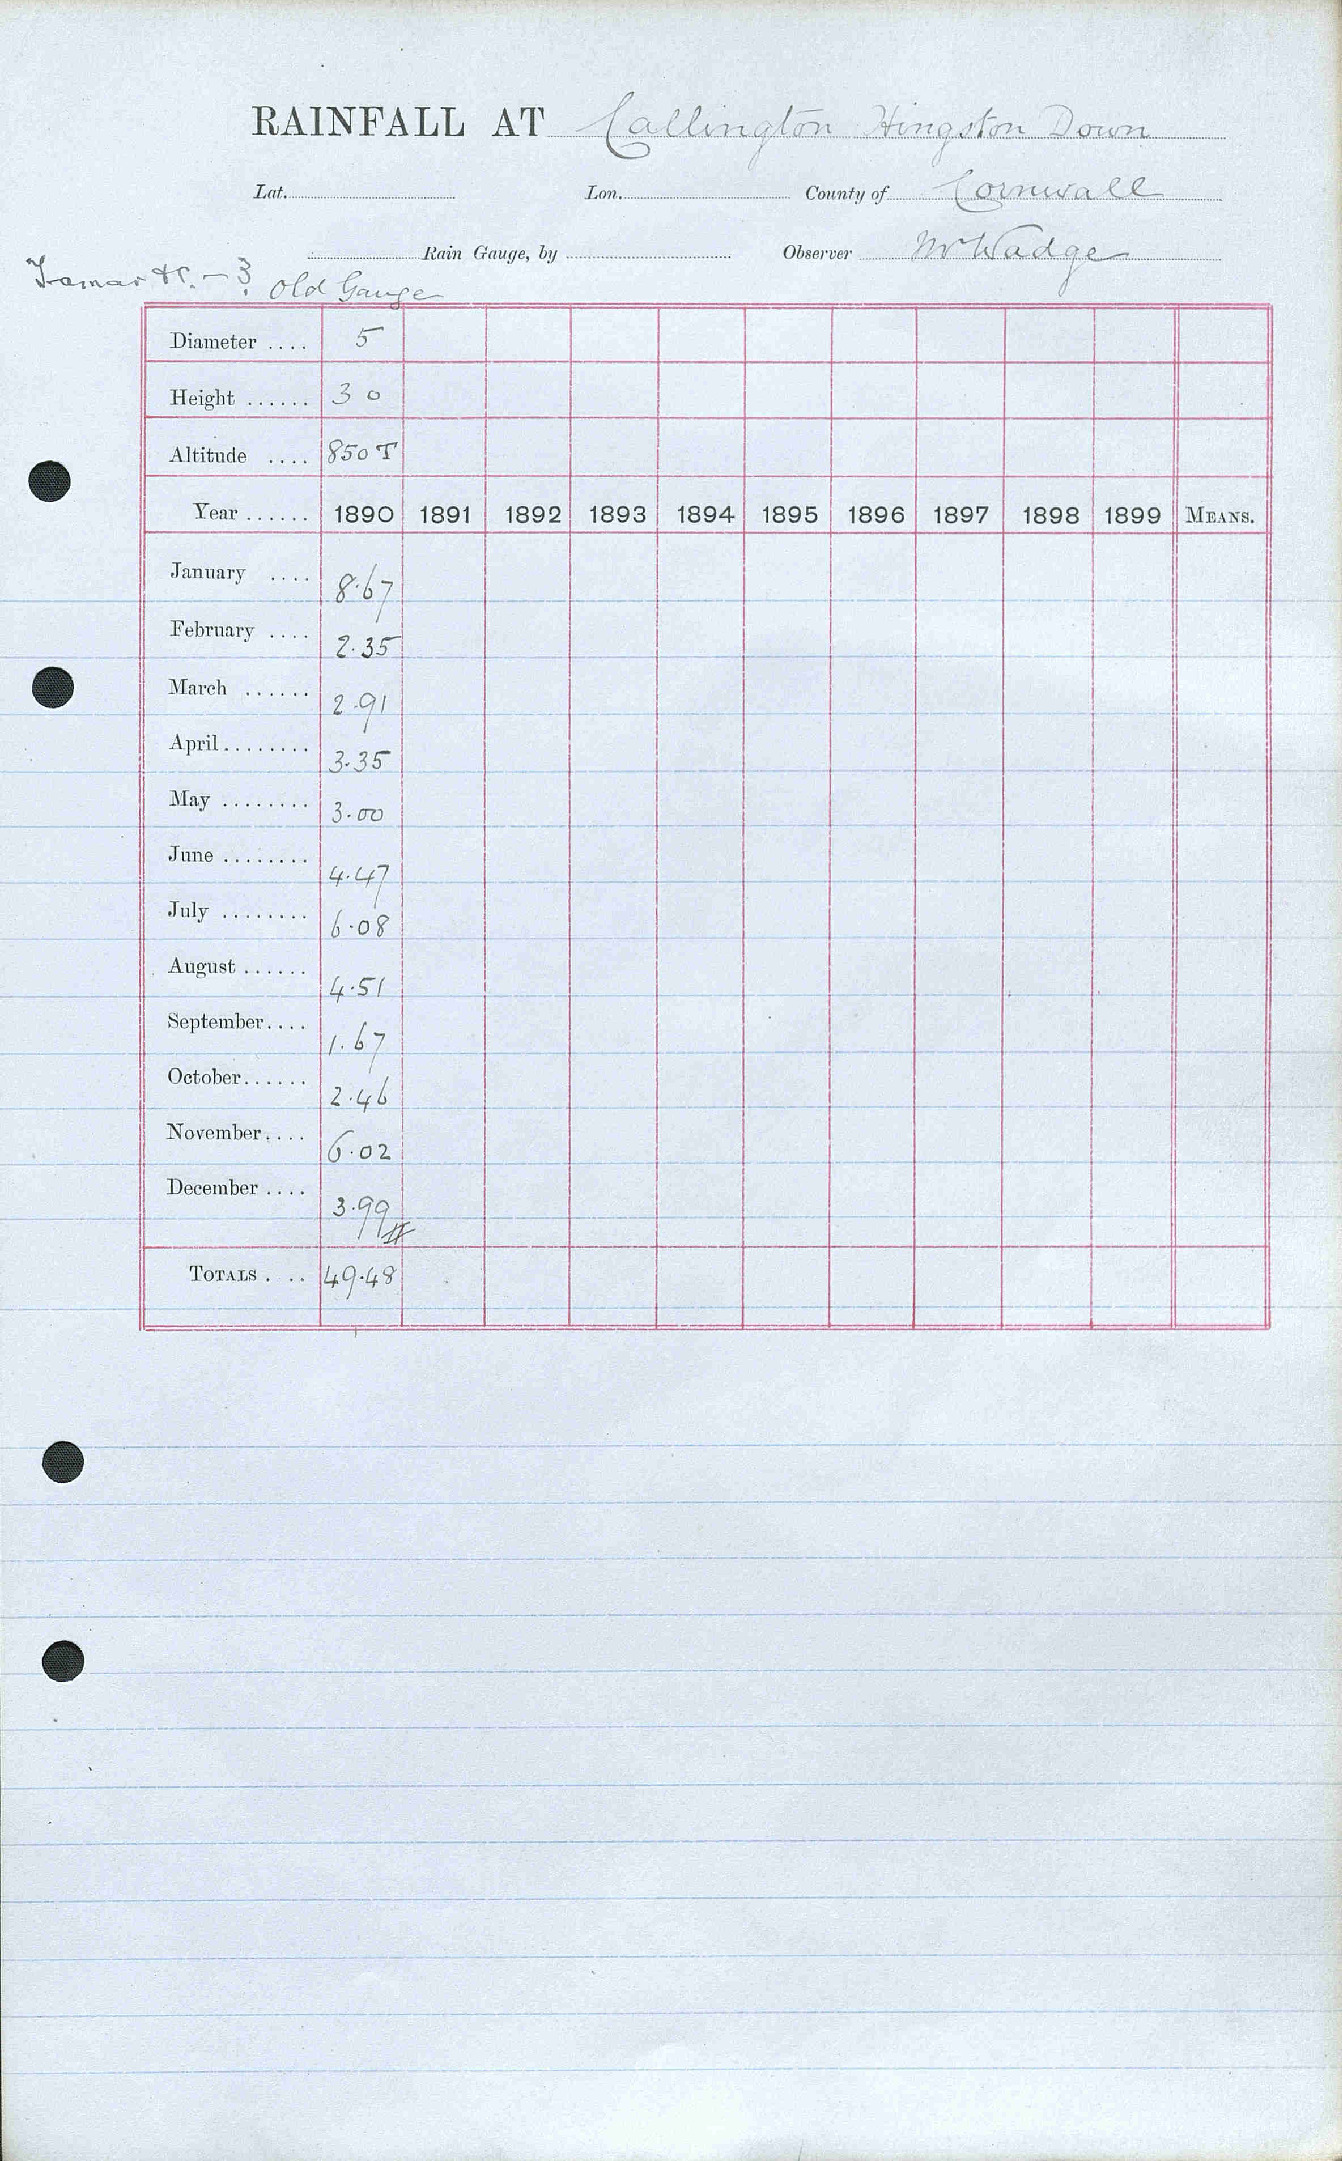 RAINFALL AT Callington Hingston Down
Lat. Lon. County of Cornwall
Rain Gauge, by Observer Mr Wadge
Tamar - 3 Old Gauge
Diameter .... 5
Height ...... 30
Altitude .... 850 T
Year ...... 1890 1891 1892 1893 1894 1895 1896 1897 1898 1899 MEANS.
January .... 8.67
February .... 2.35
March ...... 2.91
April ........ 3.35
May ........ 3.00
June ........ 4.47
July ........ 6.08
August ...... 4.51
September .... 1.67
October ...... 2.46
November .... 6.02
December .... 3.99
TOTALS . .. 49.48